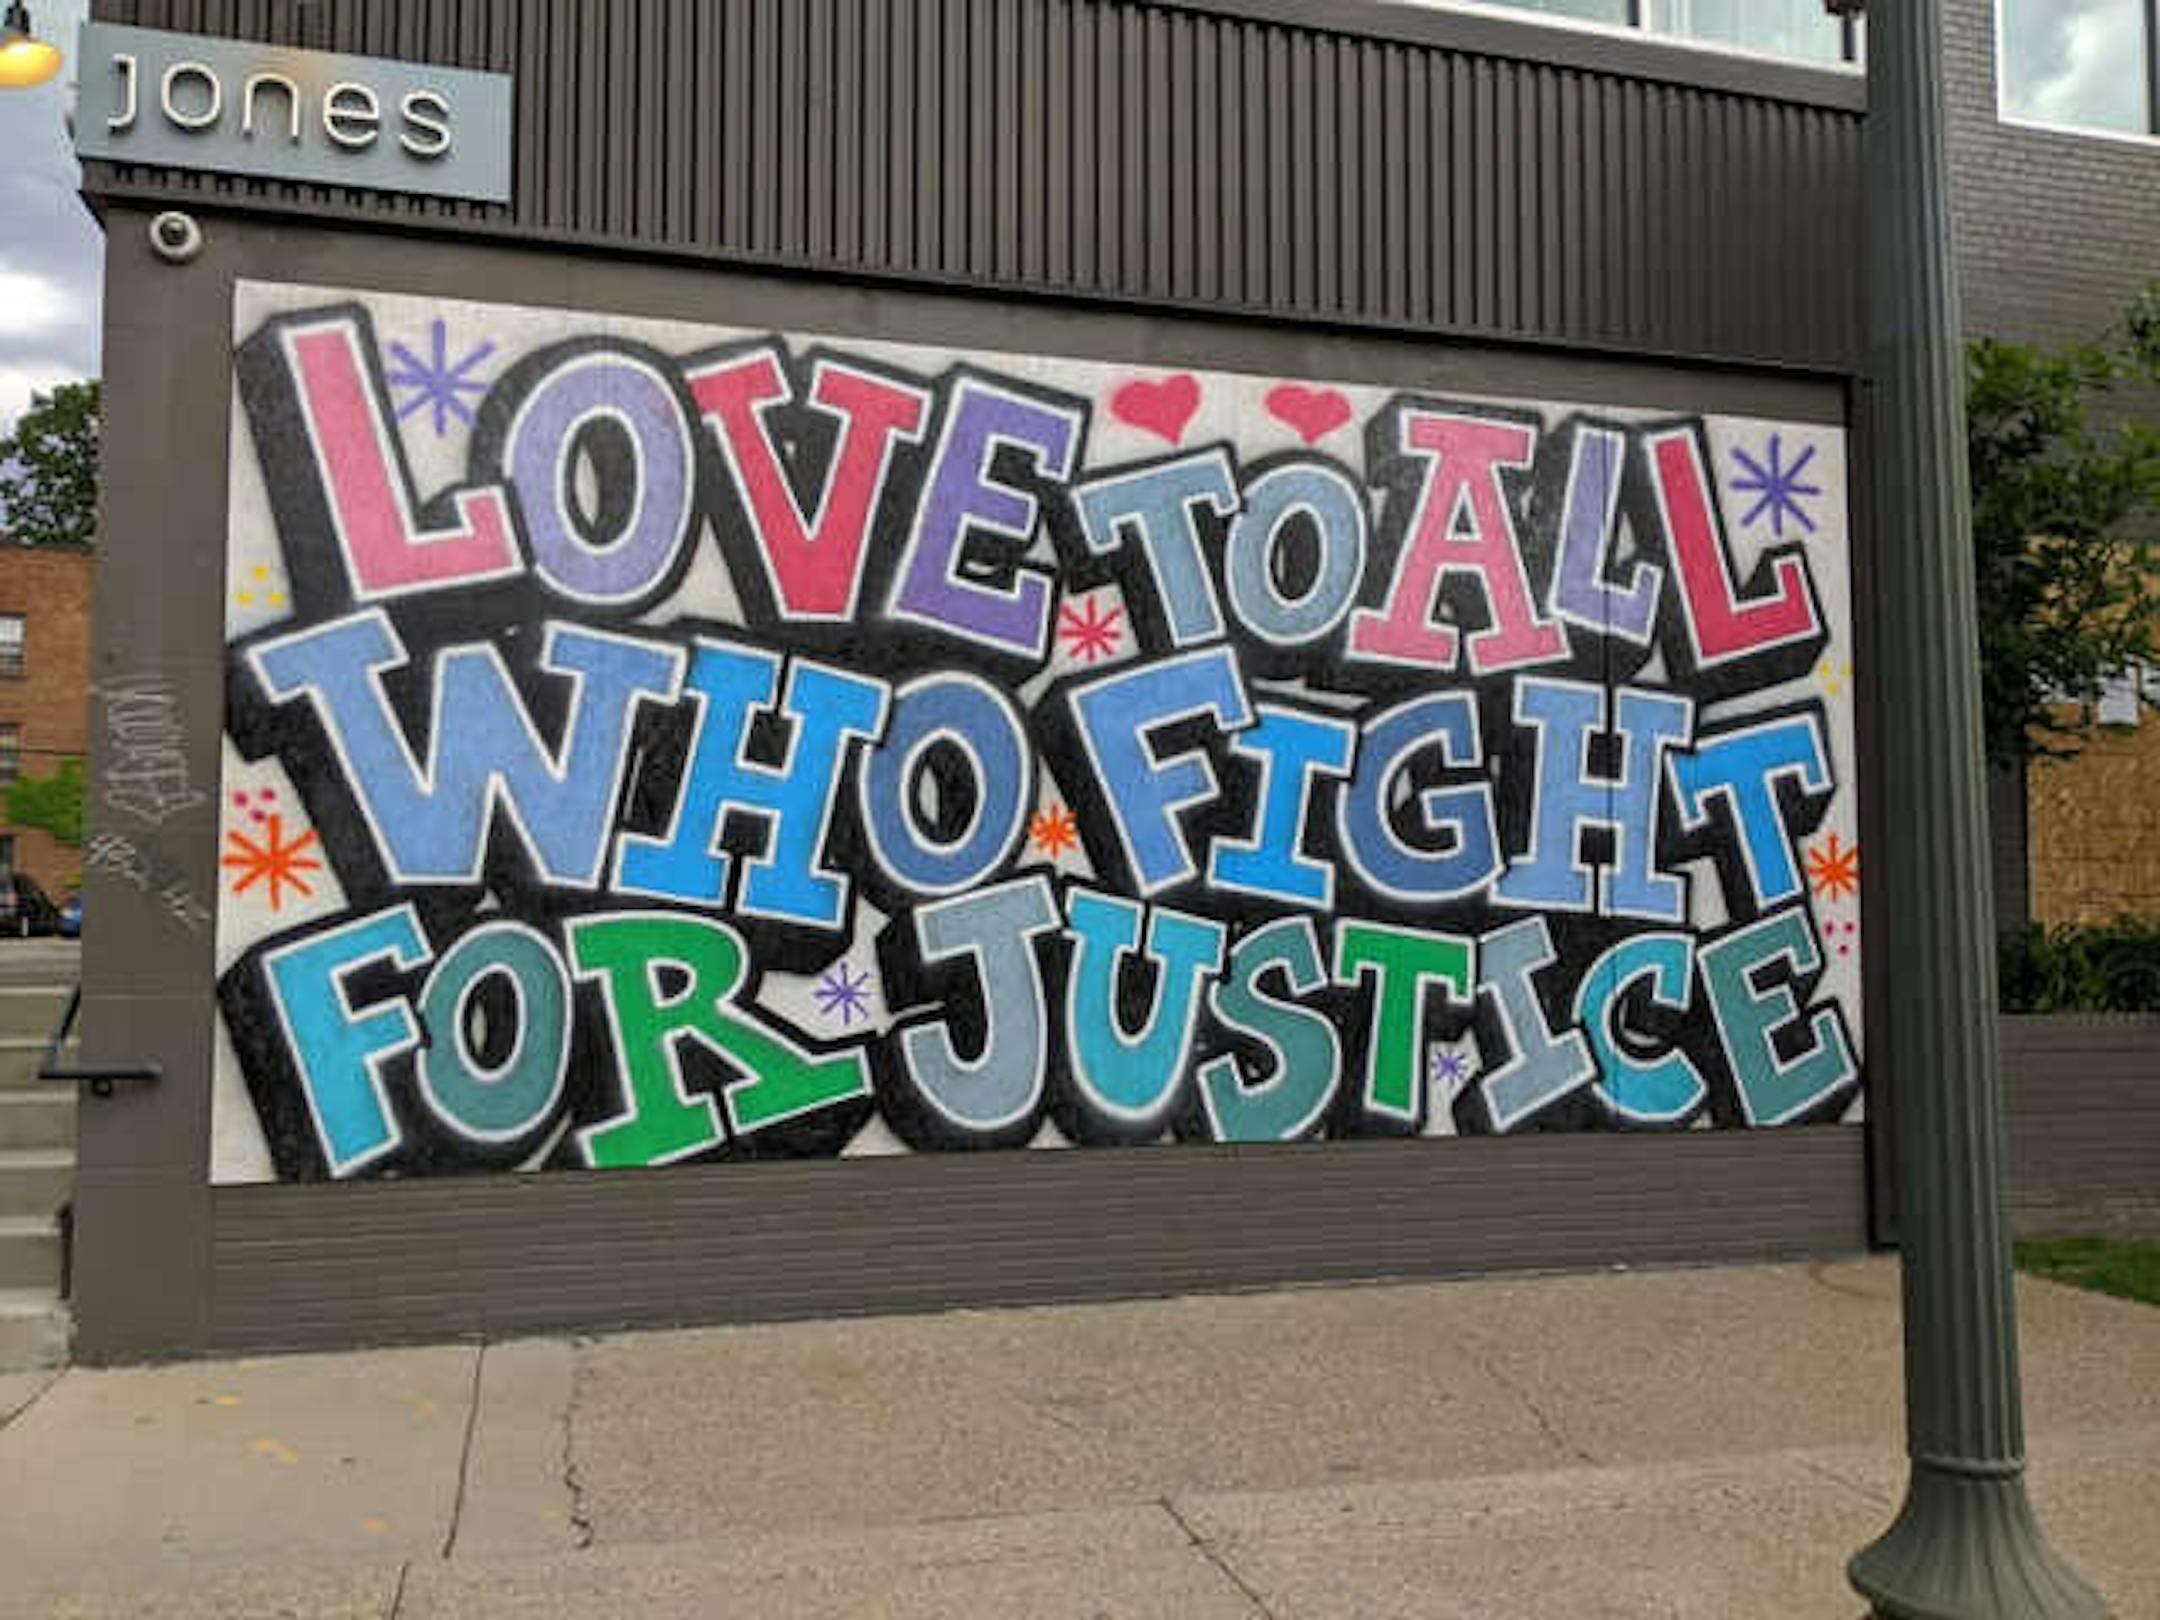 jones
LOVE TO ALL
WHO FIGHT
FOR JUSTICE